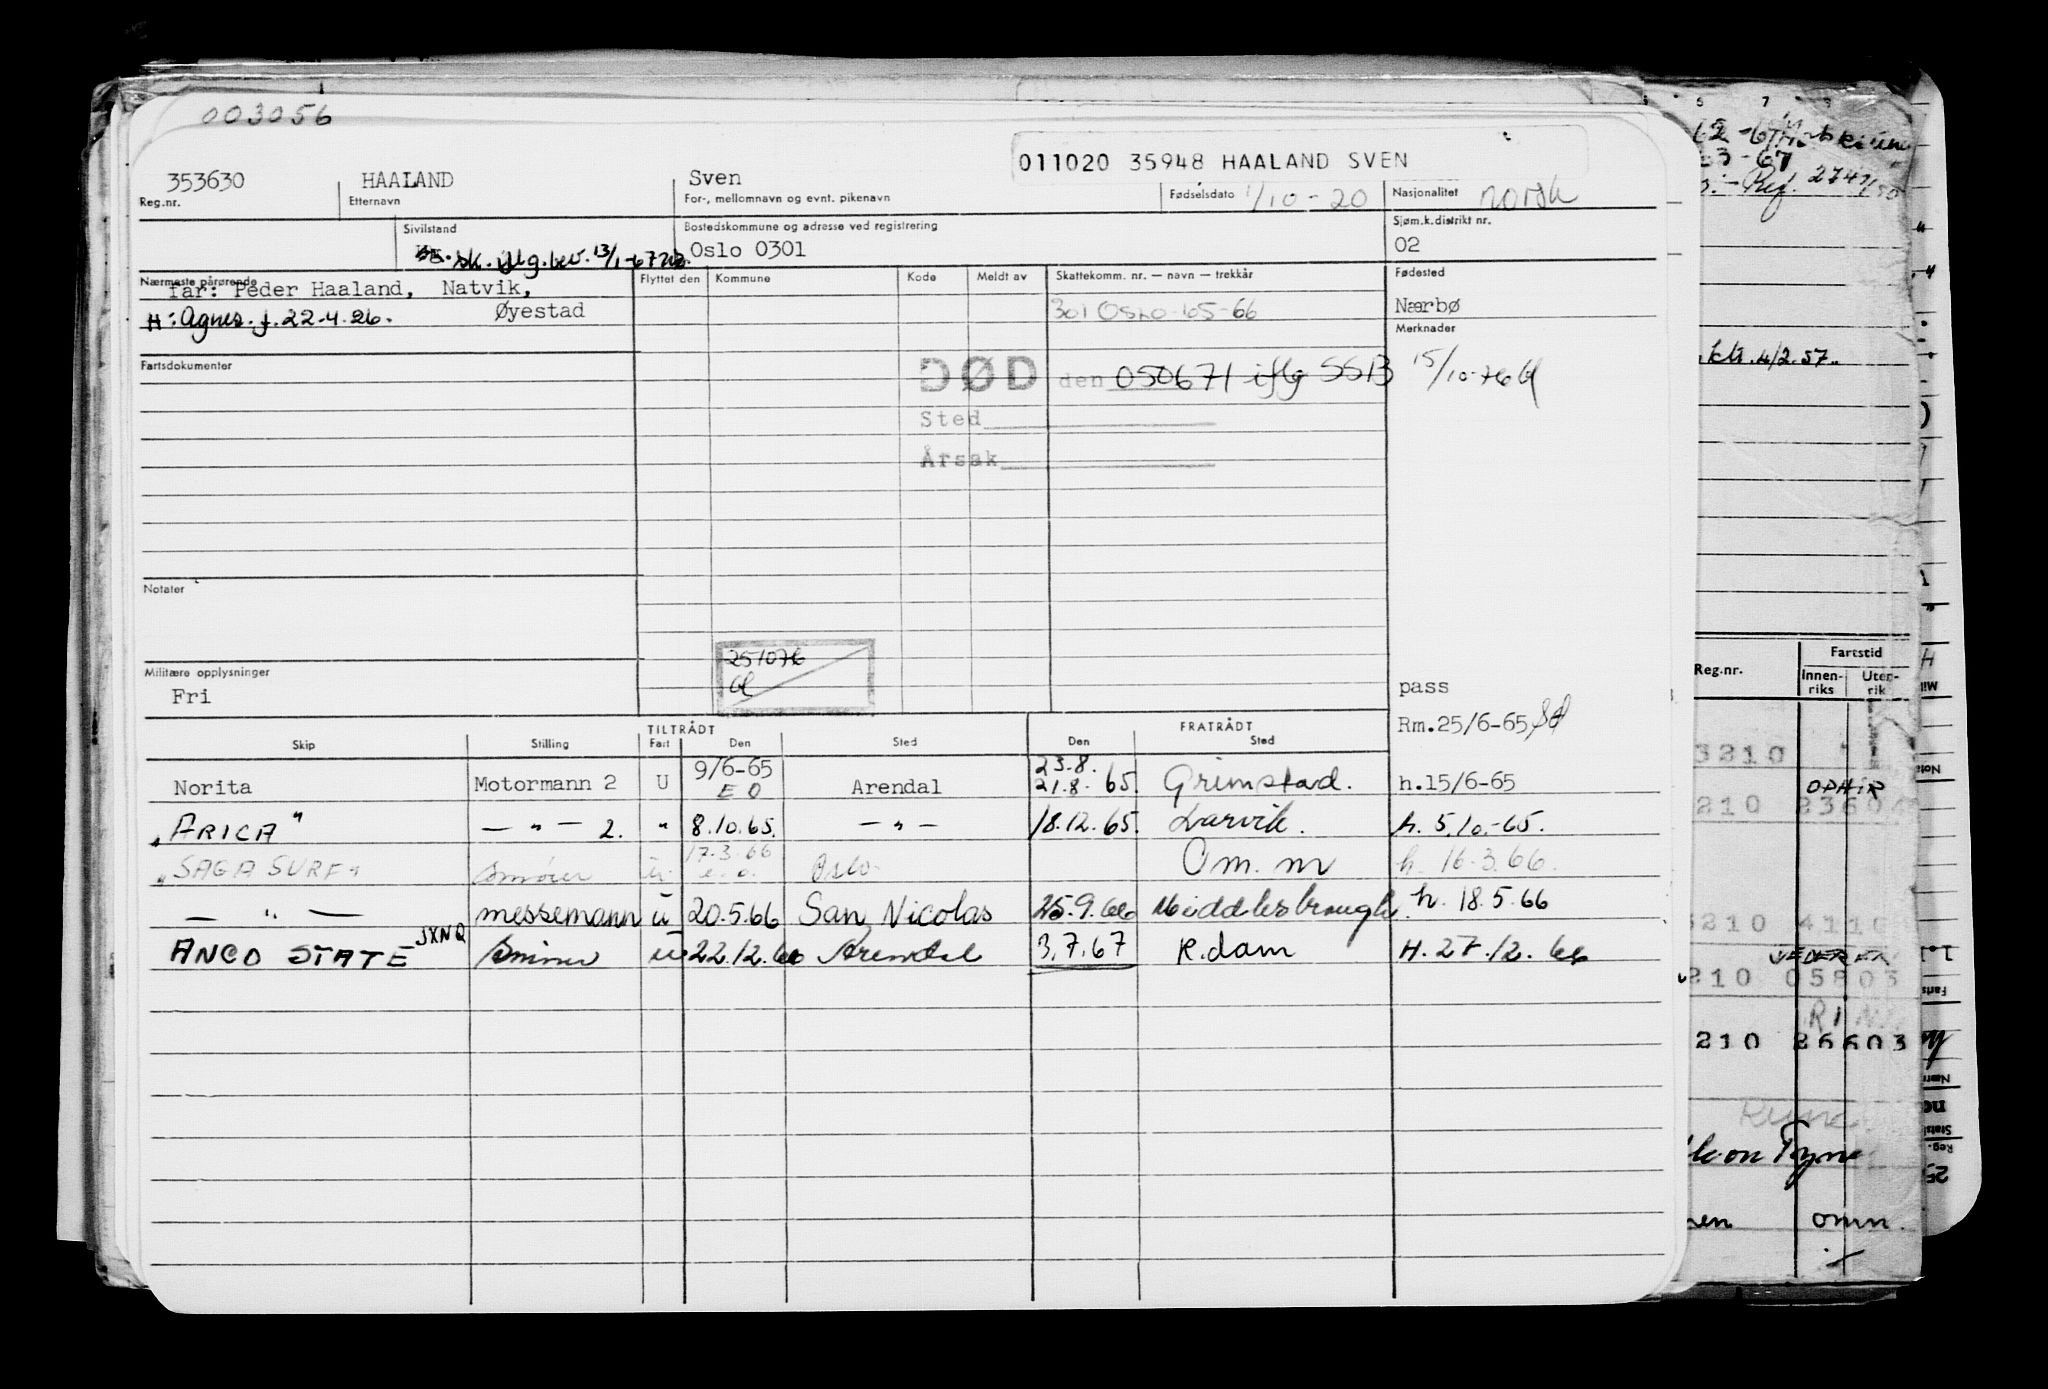 003056
011020 35948 HAALAND SVEN
353630 HAALAND Sven 1/10-20 norsk
Reg.nr. Etternavn For-, mellomnavn og evnt. pikenavn Fødselsdato Nasjonalitet
Sivilstand Bostedskommune og adresse ved registrering Sjøm.k.distrikt nr.
sk. iflg. bev. 13/1-67 Oslo 0301 02
Nærmeste pårørende Flyttet den Kommune Kode Meldt av Skattekomm. nr. — navn — trekkår Fødested
far: Peder Haaland, Natvik,
Øyestad 301 Oslo-65-66 Nærbø
H: Agnes. f. 22-4-26.
Merknader
Fartsdokumenter
DØD den 050671 iflg SSB 15/10-76
Sted
Årsak
Notater
251076
Militære opplysninger
Fri
pass
Rm.25/6-65
TILTRÅDT FRATRÅDT
Skip Stilling Fart Den Sted Den Sted
Norita Motormann 2 U 9/6-65 E O Arendal 23.8. 21.8. 65. Grimstad. h.15/6-65
"ARICA" — " — 2. " 8.10.65. — " — 18.12.65. Larvik. h. 5.10.-65.
"SAGA SURF" smører u 17.3.66 e.o. Oslo Om. nr h. 16.3.66.
— " — messemann u 20.5.66 San Nicolas 25.9.66 Middlesbrough. h. 18.5.66
ANCO STATE JXNQ u 22.12.66 Arendal 3.7.67 R.dam H. 27.12.66
6 7 8
63-67
Ref. 2747/50
ktr. 4/2.57.
Reg.nr. Fartstid
Innen-riks Uten-rik
3210
OPHIR
210 23604
3210 4110
210 05803
210 26603
omm.